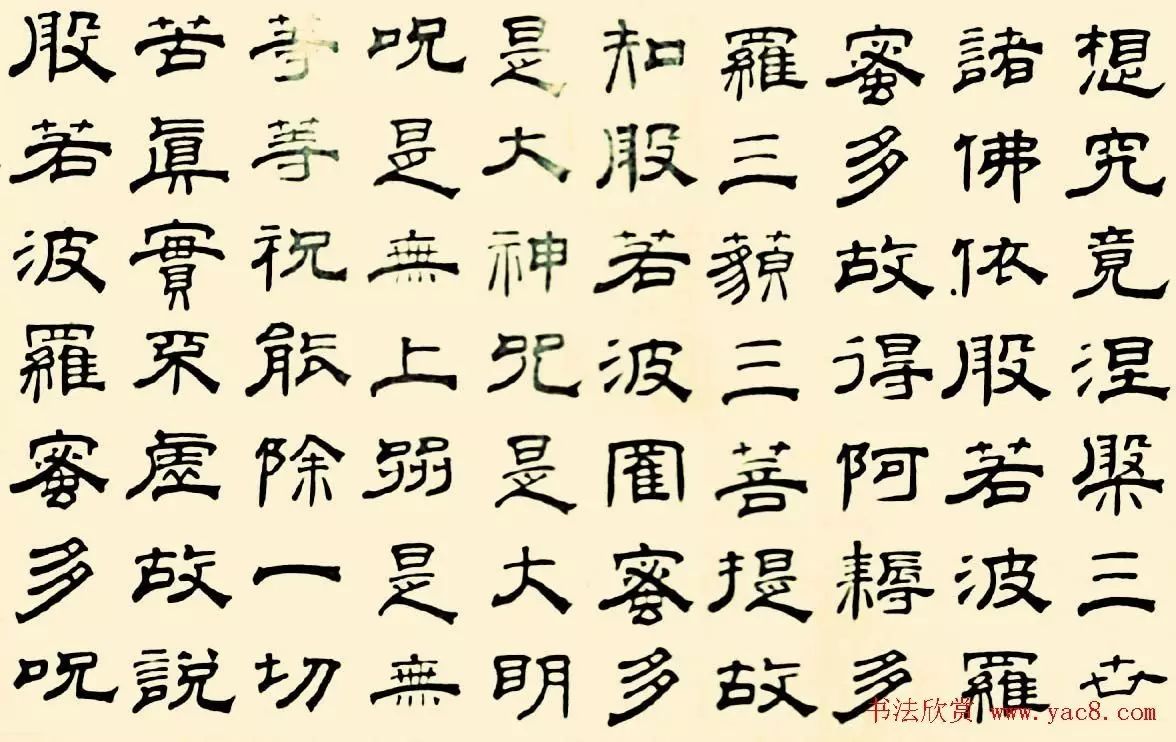 想究竟涅槃三世
諸佛依般若波羅
蜜多故得阿耨多
羅三藐三菩提故
知般若波羅蜜多
是大神咒是大明
呪是無上是無
等等祝能除一切
苦眞實不虛故說
般若波羅蜜多呪
书法欣赏 www.yac8.com